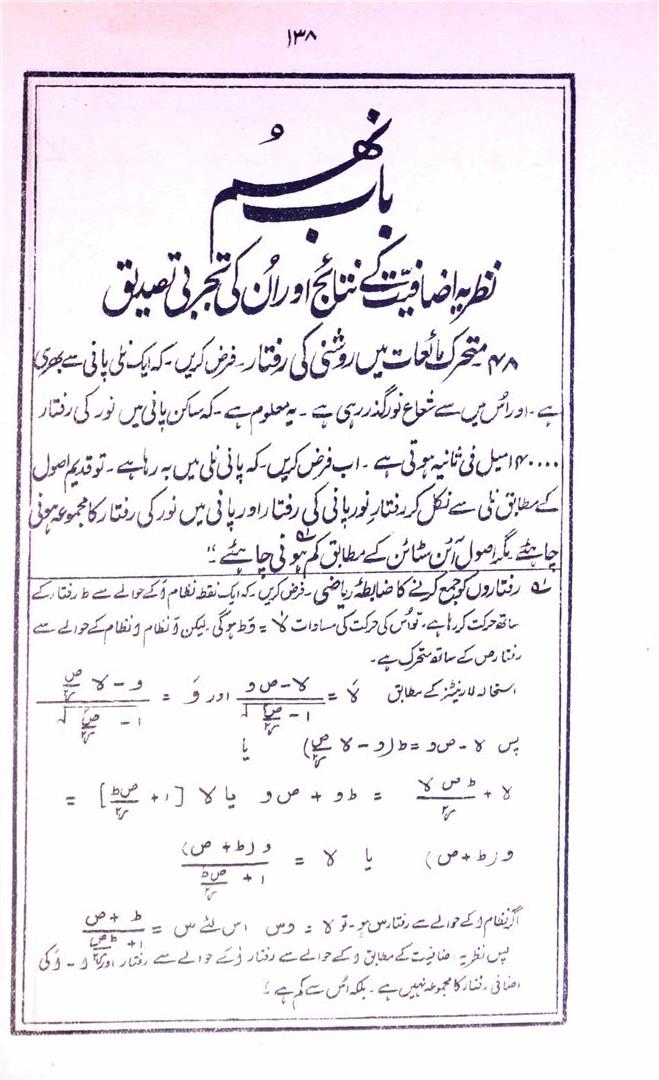 ۱۳۸
باب نہم
نظریہ اضافیت کے نتائج اور اُن کی تجربی تصدیق
۴۸ متحرک مائعات میں روشنی کی رفتار۔ فرض کریں۔ کہ ایک نلی پانی سے بھری
ہے۔ اور اُس میں سے شعاع نور گذر رہی ہے۔ یہ معلوم ہے۔ کہ ساکن پانی میں نور کی رفتار
۱۴۰۰۰۰ میل فی ثانیہ ہوتی ہے۔ اب فرض کریں۔ کہ پانی نلی میں بہ رہا ہے۔ تو قدیم اصول
کے مطابق نلی سے نکل کر رفتارِ نور پانی کی رفتار اور پانی میں نور کی رفتار کا مجموعہ ہونی
چاہئے۔ مگر اصول آئن سٹائن کے مطابق کم ہونی چاہئے۔"
رفتاروں کو جمع کرنے کا ضابطۂ ریاضی۔ فرض کریں۔ کہ ایک نقطہ نظام اَ کے حوالے سے ط رفتار کے
ساتھ حرکت کر رہا ہے۔ تو اُس کی حرکت کی مساوات لاَ = وَ ط ہوگی۔ لیکن اَ نظام ا نظام کے حوالے سے
رفتار ص کے ساتھ متحرک ہے۔
استحالہ لارینٹز کے مطابق لاَ = (لا − ص و) / √(۱ − ص۲/ر۲) اور وَ = (و − لا ص/ر۲) / √(۱ − ص۲/ر۲)
پس لا − ص و = ط (و − لا ص/ر۲) یا
لا + ط ص لا/ر۲ = ط و + ص و یا لا [۱ + ص ط/ر۲] =
و (ط + ص) یا لا = و (ط + ص) / (۱ + ص ط/ر۲)
اگر نظام ا کے حوالے سے رفتار س ہو۔ تو لا = و س اس لئے س = (ط + ص) / (۱ + ط ص/ر۲)
پس نظریہ اضافیت کے مطابق ا کے حوالے سے رفتار اَ کے حوالے سے رفتار اور ا - اَ کی
اضافی رفتار کا مجموعہ نہیں ہے۔ بلکہ اُس سے کم ہے!